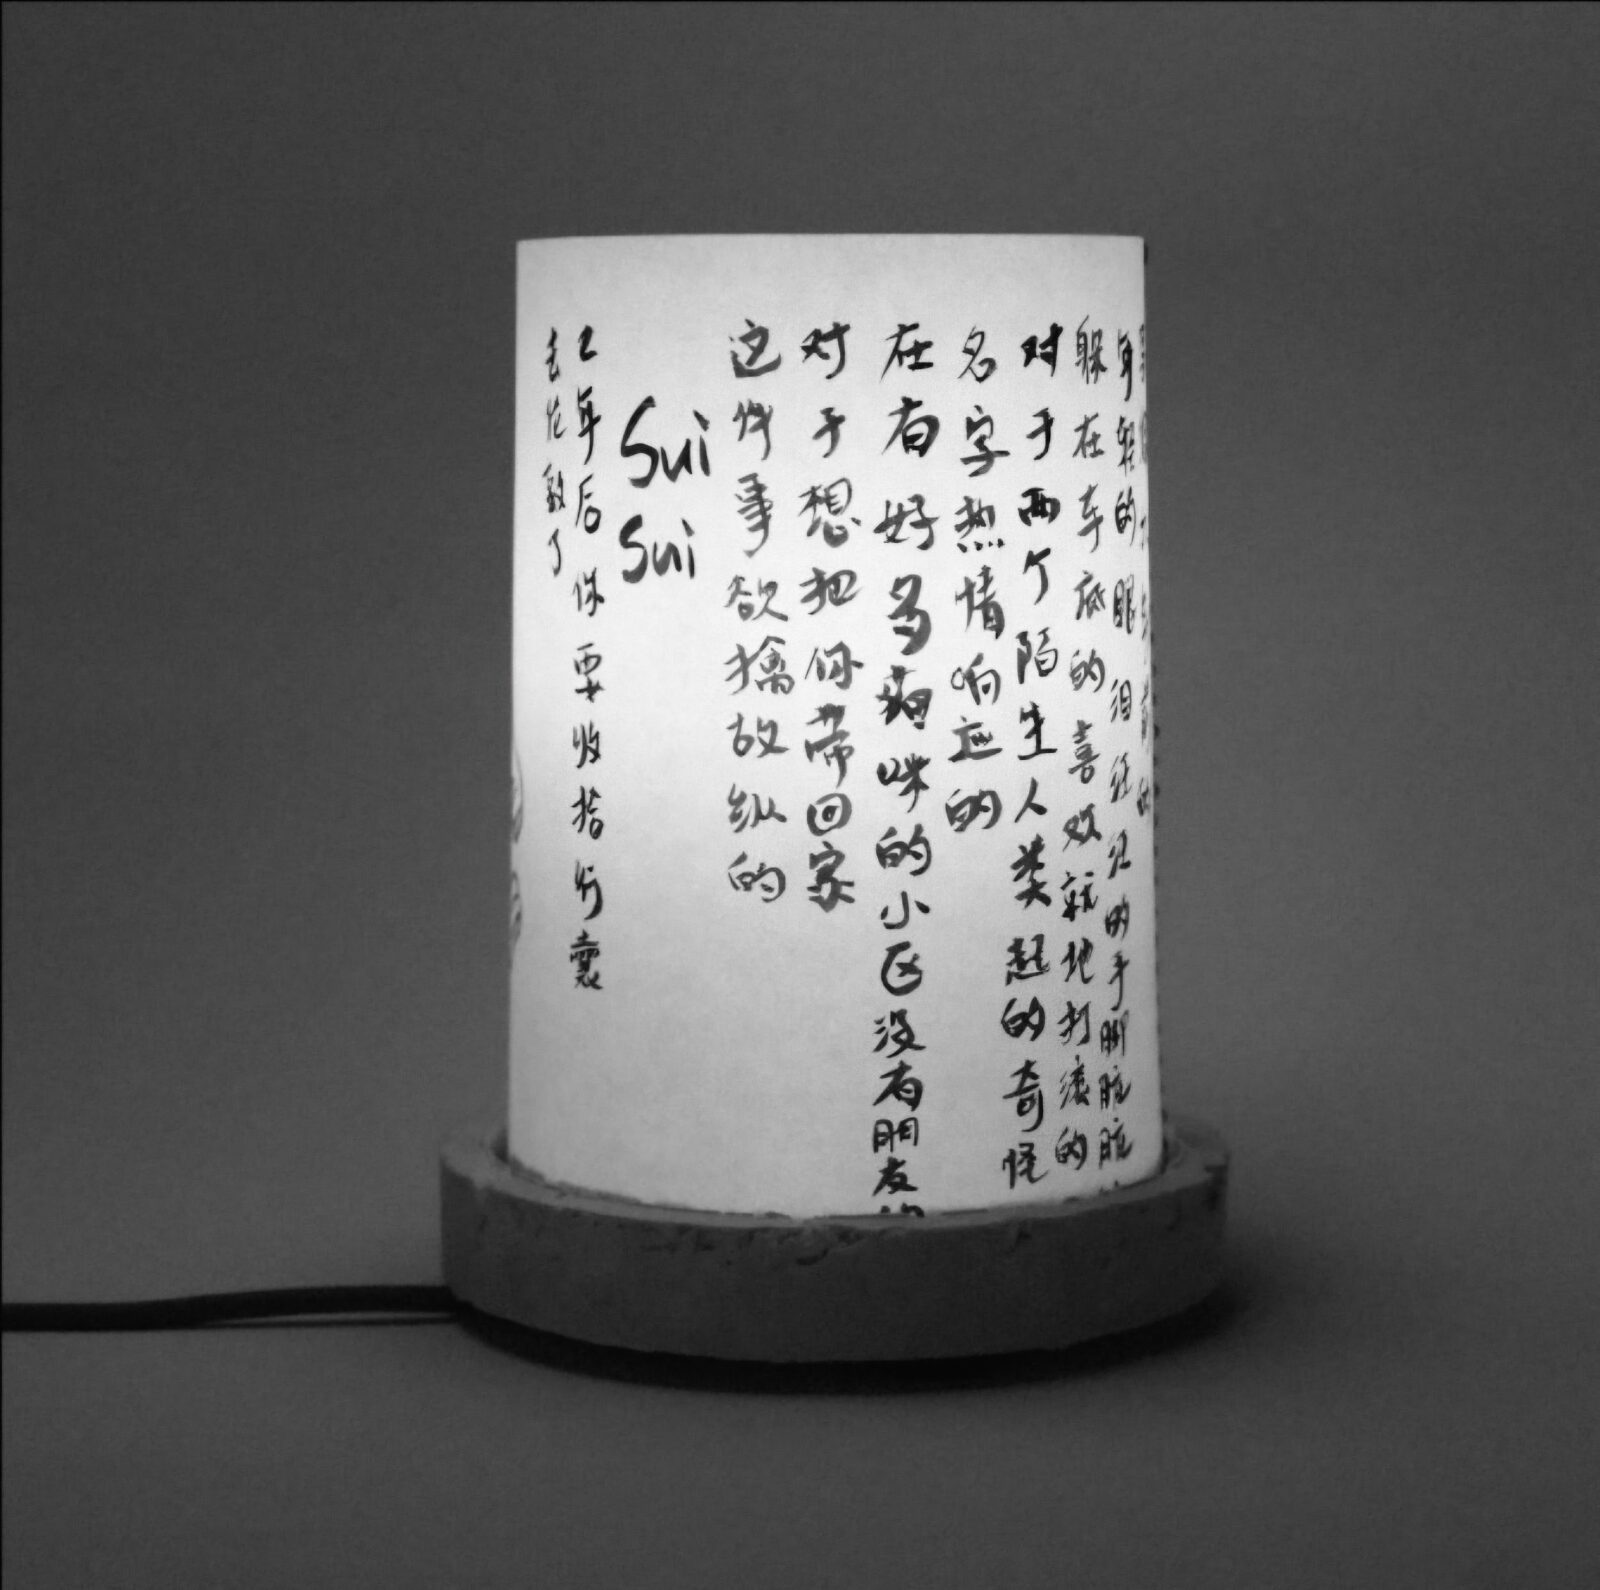 年轻的眼泪汪汪的手脚脏脏
躲在车底的喜欢就地打滚的
对于两个陌生人类起的奇怪
名字热情响应的
在有好多猫咪的小区没有朋友的
对于想把你带回家
这件事欲擒故纵的
Sui
Sui
2年后你要收拾行囊
去伦敦了